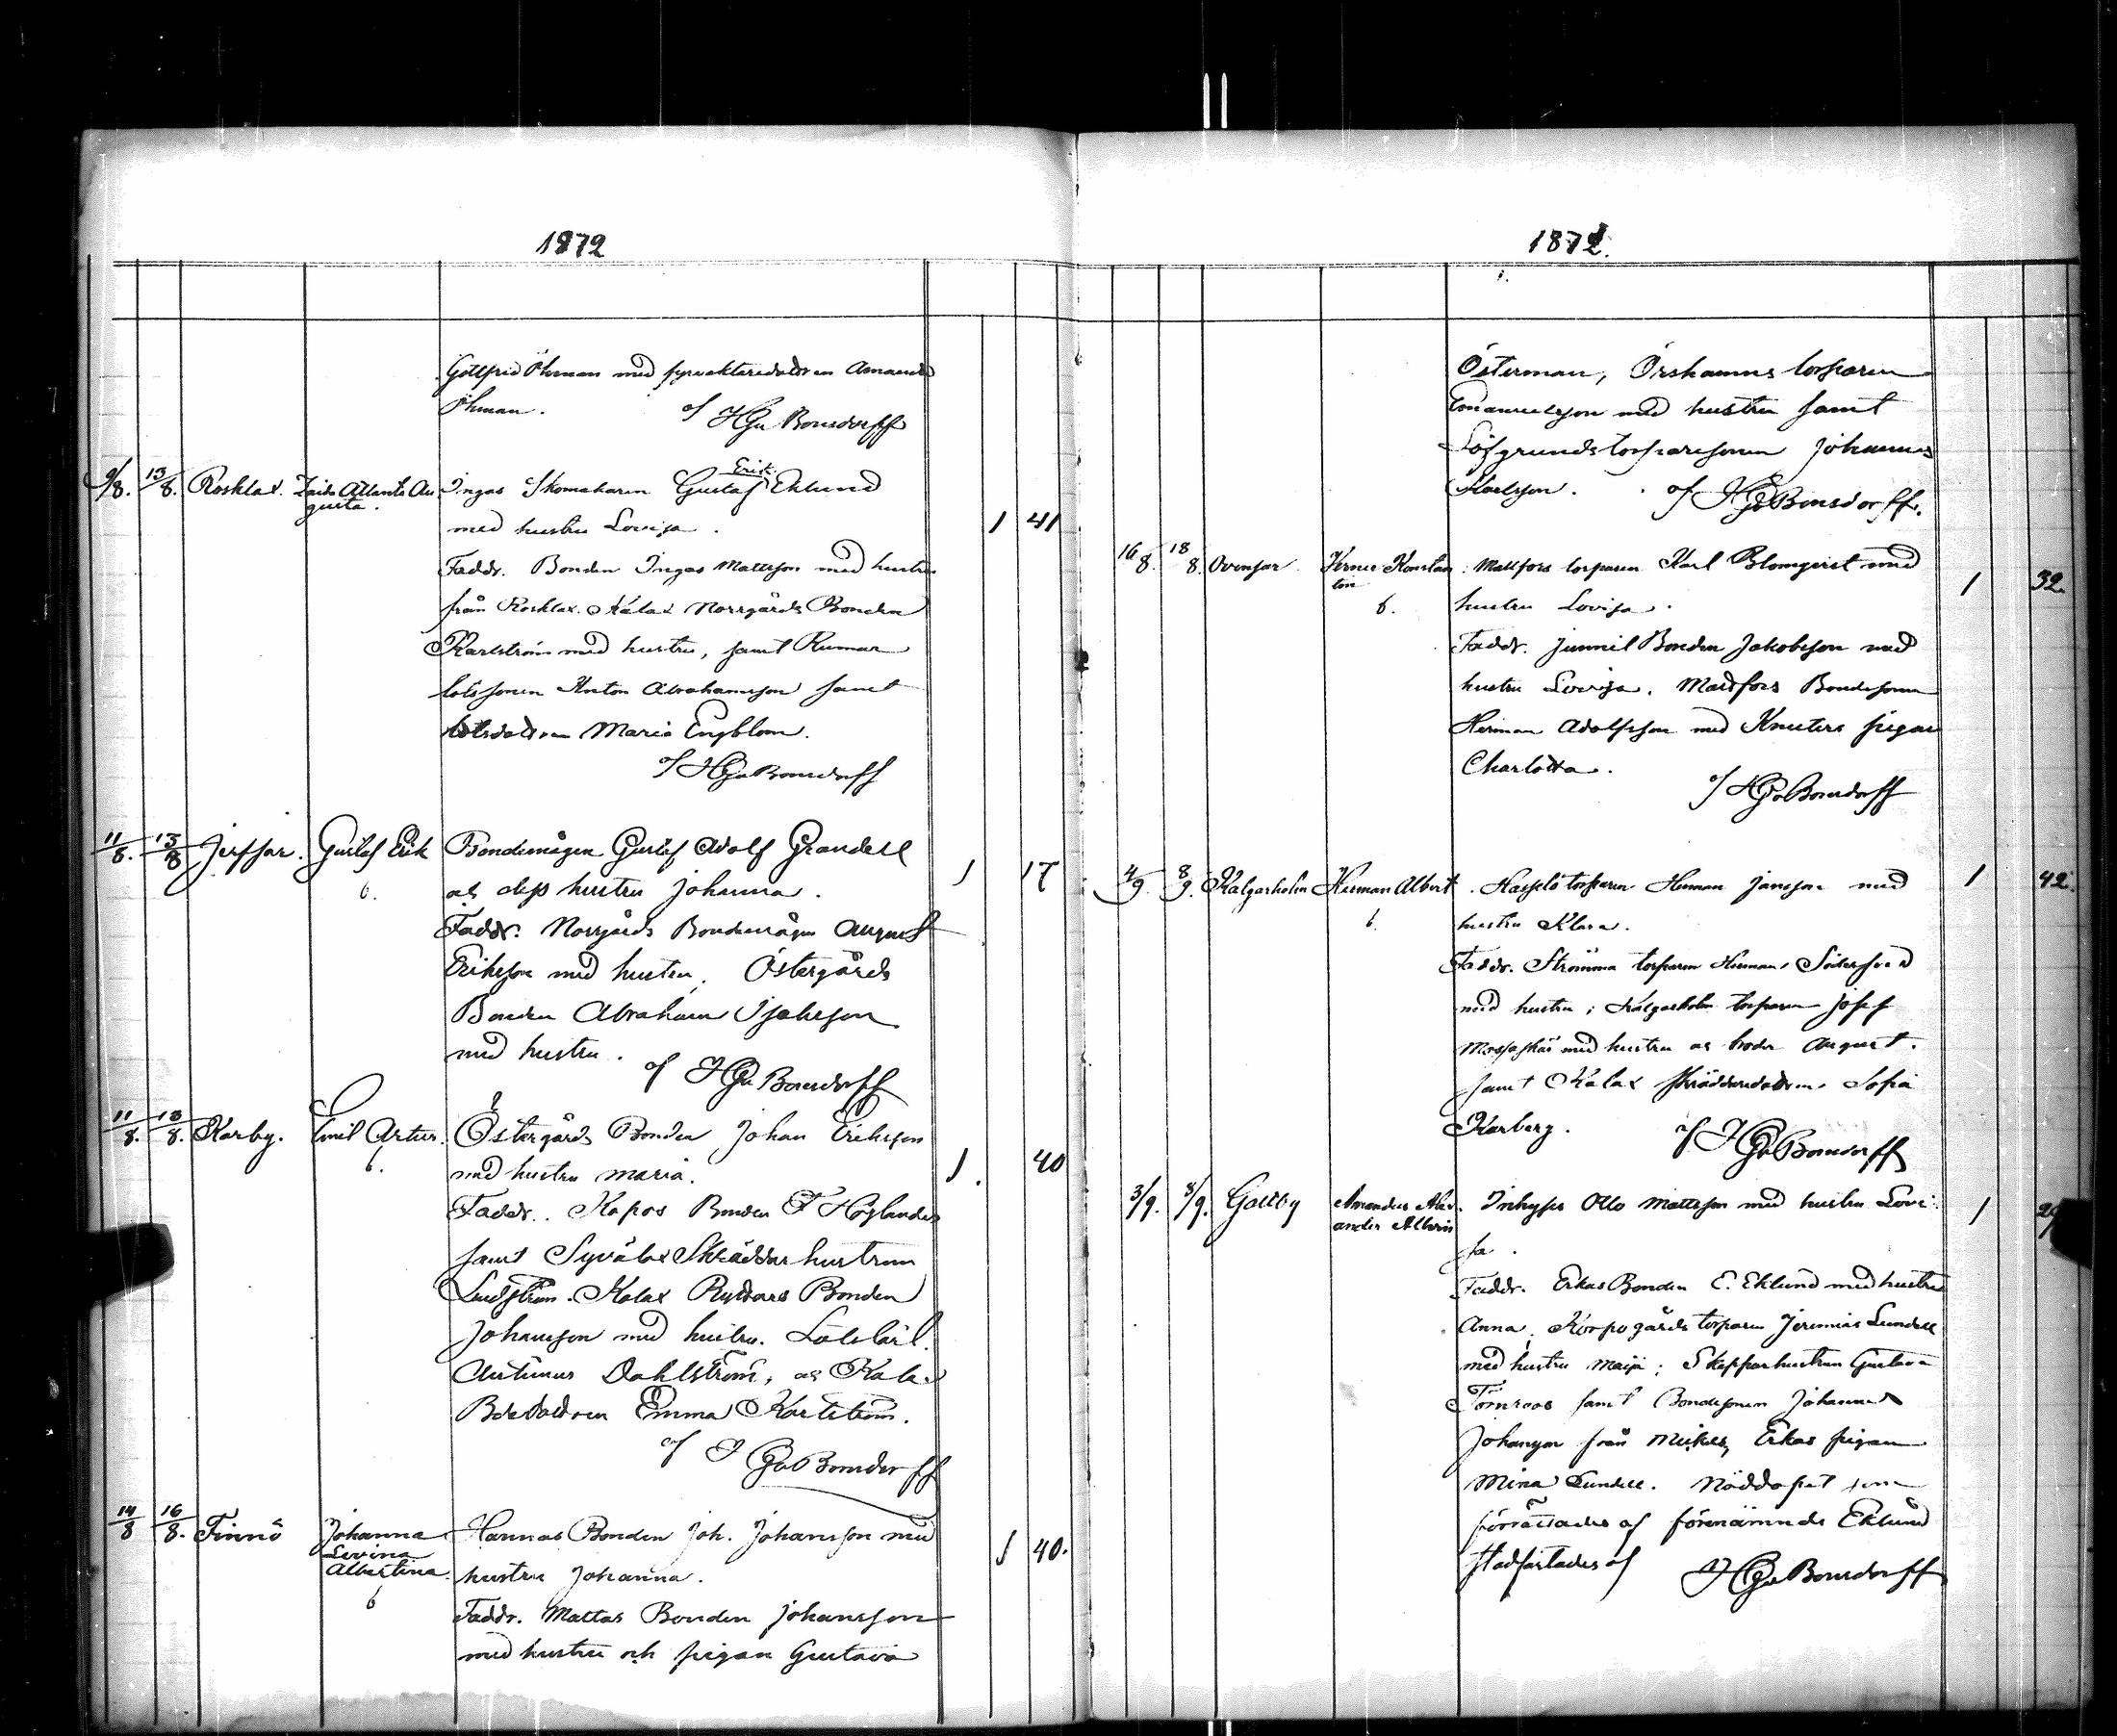 1872
Gottfrid Öhman med fyrvaktaredottren Amanda
Öhman. af HGvBonsdorff
9/8. 13/8. Rosklax. Zaida Atlanta Au Ingas Skomakaren Gustaf Erik Eklund
gusta.
med hustru Lovisa. 1 41
Faddr. Bonden Ingas Mattsson med hustru
från Rosklax. Kalax Norrgårds Bonden
Karlström med hustru, samt Rumar
lotssonen Anton Abrahamsson samt
lotsdottren Maria Engblom.
af HGvBonsdorff
11/8. 13/8 Gustaf Erik Bondemågen Gustaf Adolf Grandell 1 17
6. och dess hustru Johanna.
Faddr. Norrgårds Bondemågen August
Eriksson med hustru, Östergårds
Bonden Abraham Isaksson
med hustru. af HGvBonsdorff
11/8. 13/8. Karby. Emil Artur. Östergårds Bonden Johan Eriksson
6. med hustru Maria. 1. 40
Faddr. Kapos Bonden F Höglunds
samt Skräddar hustrun
Kalax Ryttars Bonden
Johansson med hustru.
Dahlström, och Kalax
Emma Karlström.
af HGvBonsdorff
14/8 16/8. Finnö Johanna Hannas Bonden Joh. Johansson med 1 40.
Lovina
Albertina. hustru Johanna.
6
Faddr. Mattas Bonden Johansson
med hustru och pigan Gustava
1872.
Österman, Örshamns torparen
Emanuelsson med hustru samt
Löfgrunds torparesonen Johannes
Karlsson. af HGvBonsdorff.
16/8. 18/8. Verner Konstan Mattfors torparen Karl Blomqvist med 1 32.
tin
6. hustru Lovisa.
Faddr. Junnil Bonden Jakobsson med
hustru Lovisa. Mattfors Bondesonen
Herman Adolfsson med Knuters pigan
Charlotta.
af HGvBonsdorff
4/9. 8/9. Kalgarholm Herman Albert. Hasselö torparen Herman Jansson med 1 42.
6. hustru Klara.
Faddr. Strömma torparen Herman
med hustru; Kalgarholm torparen Josef
med hustru och broder August.
samt Kalax skräddaredottren Sofia
Karberg. af HGvBonsdorff
3/9. 8/9. Galtby Amandus Alex Inhyses Otto Mattsson med hustru Lovi 1
ander Albin
sa.
Faddr. Erkas Bonden E. Eklund med hustru
Anna, Korpogårds torparen Jeremias Lundell
med hustru Maja; Skepparhustrun Gustava
Törnroos samt Bondesonen Johannes
Johansson från Mickels, Erkas pigan
Mina Lundell. Nöddopet som
förrättades af förenämnde Eklund
stadfästades af HGvBonsdorff